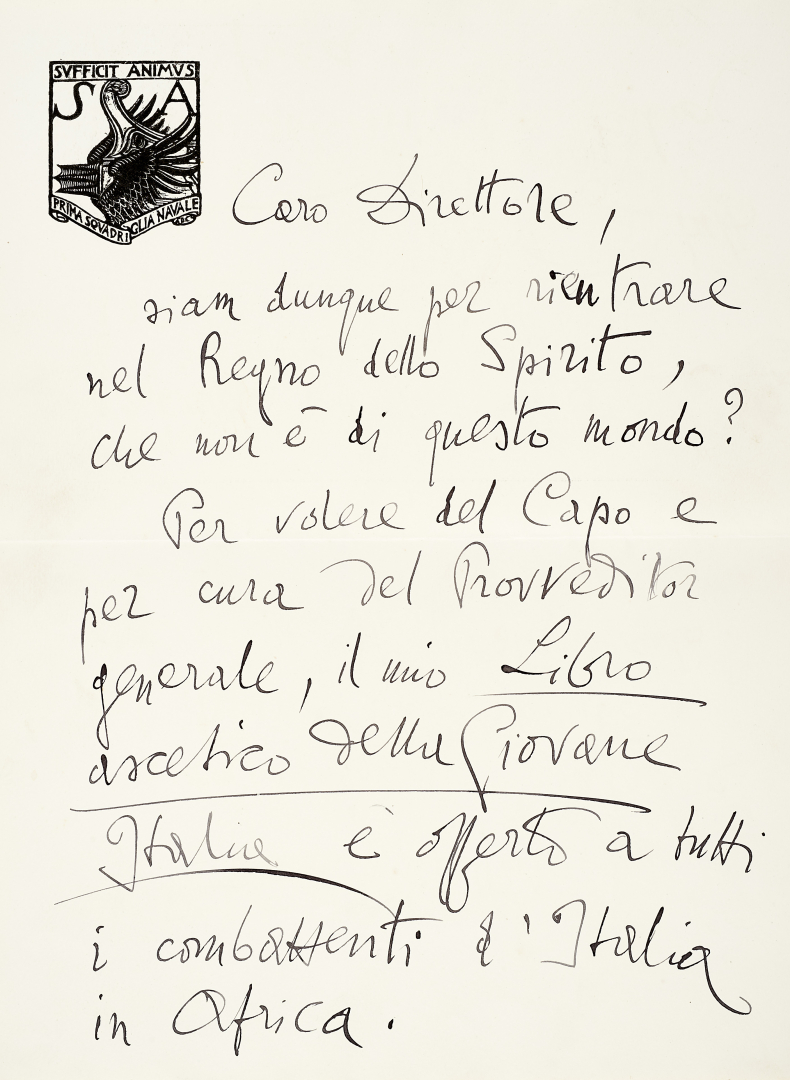 SVFFICIT ANIMVS
S A
PRIMA SQVADRIGLIA NAVALE
Caro Direttore,
siam dunque per rientrare
nel Regno dello Spirito,
che non è di questo mondo?
Per volere del Capo e
per cura del Provveditor
generale, il mio Libro
ascetico della Giovane
Italia è offerto a tutti
i combattenti d'Italia
in Africa.